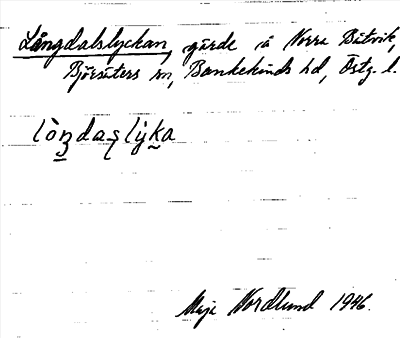 Långdalslyckan, gärde i Norra Båtvik,
Björsäters sn, Bankekinds hd, Östg. l.
lòŋdaslẏka
Maja Nordlund 1946.